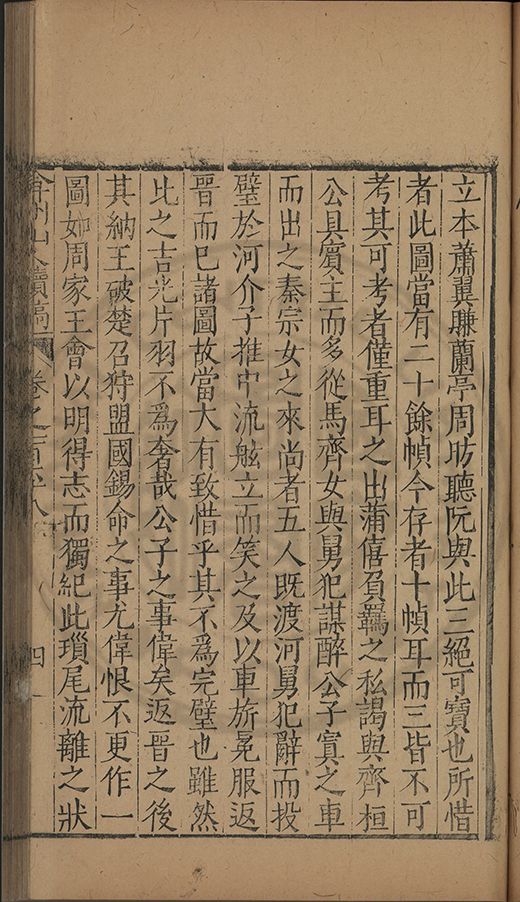 立本蕭翼賺蘭亭周昉聽阮與此三絕可寶也所惜
者此圖當有二十餘幀今存者十幀耳而三皆不可
考其可考者僅重耳之出蒲僖負羈之私謁與齊桓
公具賓主而多從馬齊女與舅犯謀醉公子寘之車
而出之秦宗女之來尚者五人既渡河舅犯辭而投
璧於河介子推中流舷立而笑之及以車旂冕服返
晉而已諸圖故當大有致惜乎其不為完璧也雖然
比之吉光片羽不為奢哉公子之事偉矣返晉之後
其納王破楚召狩盟國錫命之事尤偉恨不更作一
圖如周家王會以明得志而獨紀此瑣尾流離之狀
弇州山人續稿 卷之一百六十八 四